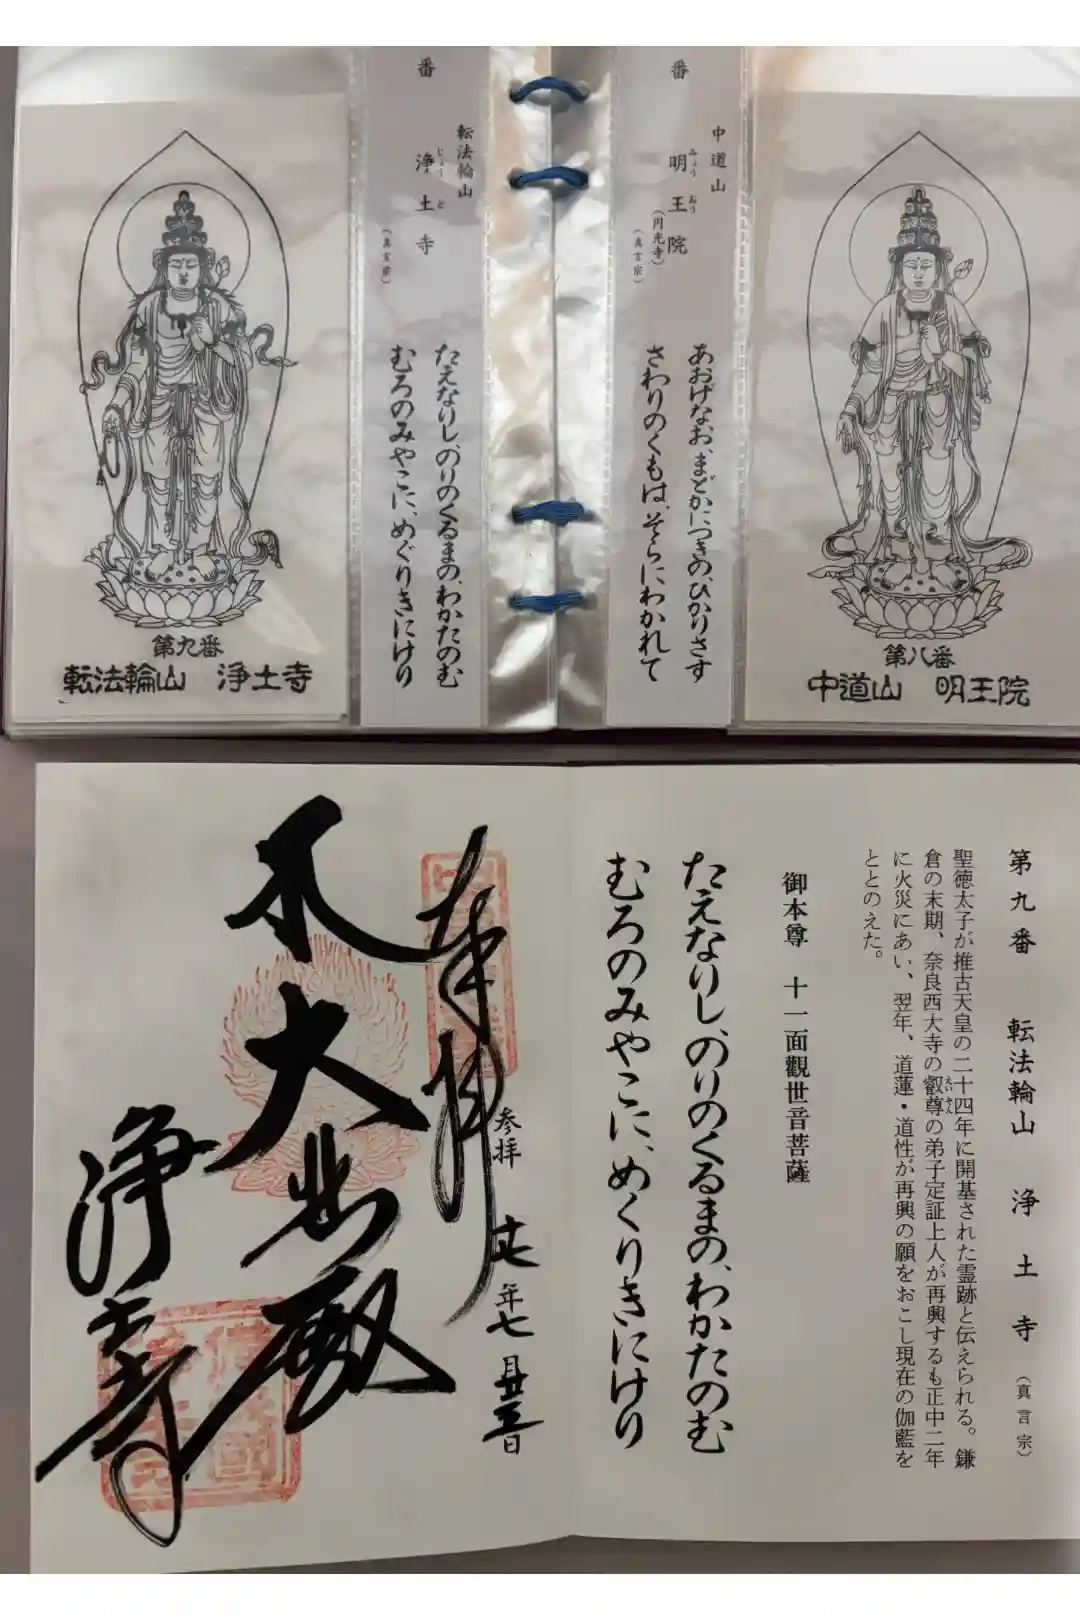 番
中道山
明王院
みょうおう
(円光寺)
(真言宗)
あおげなお、まどかにつきの、ひかりさす
さわりのくもは、そらにわかれて
第八番
中道山 明王院
番
転法輪山
浄土寺
じょうど
(真言宗)
たえなりし、のりのくるまの、わかたのむ
むろのみやこに、めぐりきにけり
第九番
転法輪山 浄土寺
第九番 転法輪山 浄土寺(真言宗)
聖徳太子が推古天皇の二十四年に開基された霊跡と伝えられる。鎌
倉の末期、奈良西大寺の叡尊の弟子定証上人が再興するも正中二年
えいそん
に火災にあい、翌年、道蓮・道性が再興の願をおこし現在の伽藍を
ととのえた。
御本尊 十一面觀世音菩薩
たえなりし、のりのくるまの、わかたのむ
むろのみやこに、めくりきにけり
奉拝
参拝
年七月廿三日
大悲殿
浄土寺